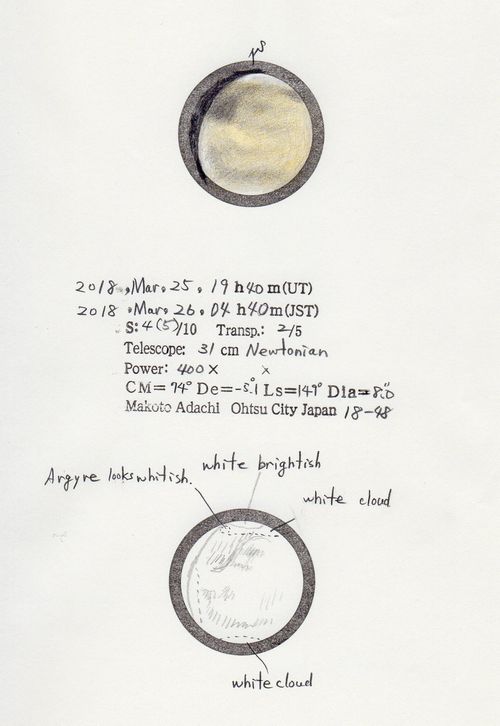 2018, Mar. 25, 19 h 40 m (UT)
2018, Mar. 26, 04 h 40 m (JST)
S: 4(5)/10 Transp.: 2/5
Telescope: 31 cm Newtonian
Power: 400× ×
CM= 74° De=-5.°1 Ls=149° Dia=8."0
Makoto Adachi Ohtsu City Japan 18-48
white brightish
Argyre looks whitish.
white cloud
white cloud